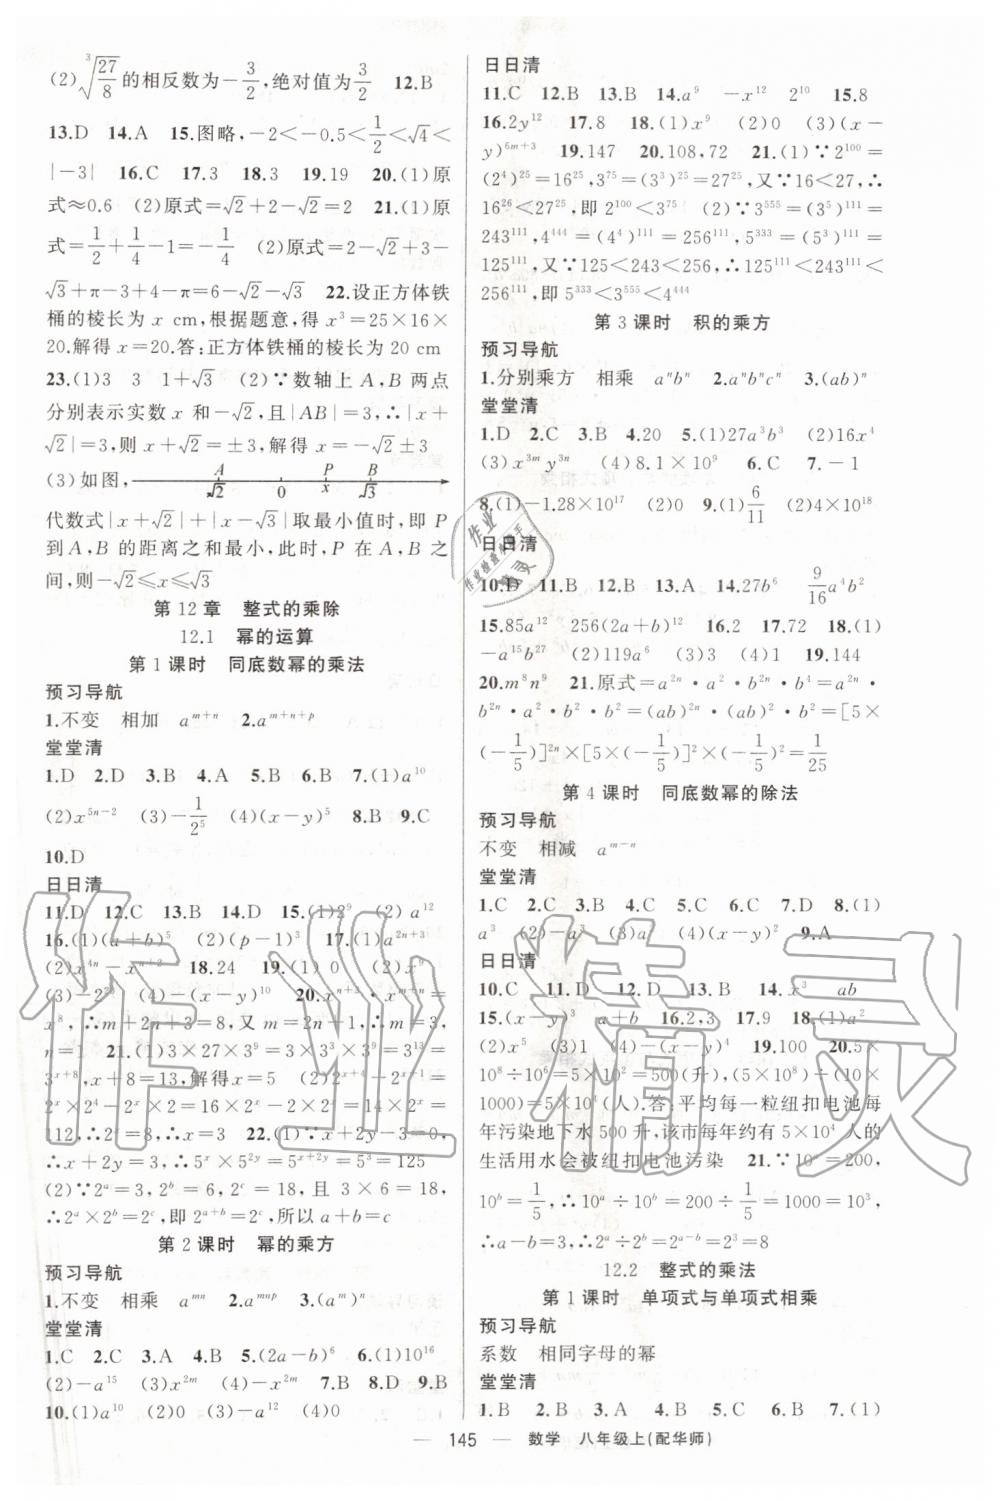 (2)∛(27/8)的相反数为−3/2,绝对值为3/2 12.B
13.D 14.A 15.图略,−2<−0.5<1/2<√4<
|−3| 16.C 17.3 18.3 19.19 20.(1)原
式≈0.6 (2)原式=√2+2−√2=2 21.(1)原
式=1/2+1/4−1=−1/4 (2)原式=2−√2+3−
√3+π−3+4−π=6−√2−√3 22.设正方体铁
桶的棱长为 x cm,根据题意,得 x³=25×16×
20.解得 x=20.答:正方体铁桶的棱长为 20 cm
23.(1)3 3 1+√3 (2)∵数轴上 A,B 两点
分别表示实数 x 和−√2,且|AB|=3,∴|x+
√2|=3,则 x+√2=±3,解得 x=−√2±3
(3)如图,
A P B
√2 0 x √3
代数式|x+√2|+|x−√3|取最小值时,即 P
到 A,B 的距离之和最小,此时,P 在 A,B 之
间,则−√2≤x≤√3
第 12 章 整式的乘除
12.1 幂的运算
第 1 课时 同底数幂的乘法
预习导航
1.不变 相加 a^(m+n) 2.a^(m+n+p)
堂堂清
1.D 2.D 3.B 4.A 5.B 6.B 7.(1)a¹⁰
(2)x^(5n−2) (3)−1/2⁵ (4)(x−y)⁵ 8.B 9.C
10.D
日日清
11.D 12.C 13.B 14.D 15.(1)2⁹ (2)a¹²
16.(1)(a+b)⁵ (2)(p−1)³ 17.(1)a^(2n+3)
(2)x^(4n)−x^(n+2) 18.24 19.(1)0
(4)−(x−y)¹⁰ 20.x^(n+3)=
x⁸,∴m+2n+3=8,又 m=2n+1,∴m=3,
n=1 21.(1)3×27×3⁹=3×3³×3⁹=3¹³=
3^(x+8),x+8=13,解得 x=5
2^x×2⁴−2×2^x=16×2^x−2×2^x=14×2^x=
112,∴2^x=8,x=3 22.(1)∵x+2y−3=0,
∴x+2y=3,∴5^x×5^(2y)=5^(x+2y)=5³=125
(2)∵2^a=3,2^b=6,2^c=18,且 3×6=18,
∴2^a×2^b=2^c,即 2^(a+b)=2^c,所以 a+b=c
第 2 课时 幂的乘方
预习导航
1.不变 相乘 a^(mn) 2.a^(mnp) 3.(a^m)^n
堂堂清
1.C 2.C 3.A 4.B 5.(2a−b)⁶ 6.(1)10¹⁶
(2)−a¹⁵ (3)x^(2m) (4)−x^(2m) 7.B 8.D 9.B
10.(1)a¹⁰ (2)0 (3)−a¹² (4)0
日日清
11.C 12.B 13.B 14.a⁹ −x¹² 2¹⁰ 15.8
16.2y¹² 17.8 18.(1)x⁹ (2)0 (3)(x−
y)^(6m+3) 19.147 20.108,72 21.(1)∵2¹⁰⁰=
(2⁴)²⁵=16²⁵,3⁷⁵=(3³)²⁵=27²⁵,又∵16<27,∴
16²⁶<27²⁵,即 2¹⁰⁰<3⁷⁵ (2)∵3⁵⁵⁵=(3⁵)¹¹¹=
243¹¹¹,4⁴⁴⁴=(4⁴)¹¹¹=256¹¹¹,5³³³=(5³)¹¹¹=
125¹¹¹,又∵125<243<256,∴125¹¹¹<243¹¹¹<
256¹¹¹,即 5³³³<3⁵⁵⁵<4⁴⁴⁴
第 3 课时 积的乘方
预习导航
1.分别乘方 相乘 a^n b^n 2.a^n b^n c^n 3.(ab)^n
堂堂清
1.D 2.C 3.B 4.20 5.(1)27a³b³ (2)16x⁴
(3)x^(3m) y^(3n) (4)8.1×10⁹ 6.C 7.−1
8.(1)−1.28×10¹⁷ (2)0 9.(1)6/11 (2)4×10¹⁸
日日清
10.D 11.B 12.A 13.A 14.27b⁶ 9/16 a⁴b²
15.85a¹² 256(2a+b)¹² 16.2 17.72 18.(1)
−a¹⁵b²⁷ (2)119a⁶ (3)3 (4)1 19.144
20.m⁸n⁹ 21.原式=a^(2n)·a²·b^(2n)·b⁴=a^(2n)·
b^(2n)·a²·b²·b²=(ab)^(2n)·(ab)²·b²=[5×
(−1/5)]^(2n)×[5×(−1/5)]²×(−1/5)²=1/25
第 4 课时 同底数幂的除法
预习导航
不变 相减 a^(m−n)
堂堂清
1.C 2.C 3.C 4.C 5.C 6.C 7.D 8.(1)
a³ (2)−a³ (3)a (4)(x−y)² 9.A
日日清
10.C 11.D 12.D 13.B 14.x³ ab
15.(x−y)³ a+b 16.2,3 17.9 18.(1)a²
(2)x⁵ (3)1 (4)−(x−y)⁴ 19.100 20.5×
10⁸÷10⁶=5×10²=500(升),(5×10⁸)÷(10×
1000)=5×10⁴(人).答:平均每一粒纽扣电池每
年污染地下水 500 升,该市每年约有 5×10⁴ 人的
生活用水会被纽扣电池污染 21.∵10^a=200,
10^b=1/5,∴10^a÷10^b=200÷1/5=1000=10³,
∴a−b=3,∴2^a÷2^b=2^(a−b)=2³=8
12.2 整式的乘法
第 1 课时 单项式与单项式相乘
预习导航
系数 相同字母的幂
堂堂清
1.B 2.D 3.C 4.A 5.B 6.D 7.D
— 145 — 数学 八年级上(配华师)
作业精灵